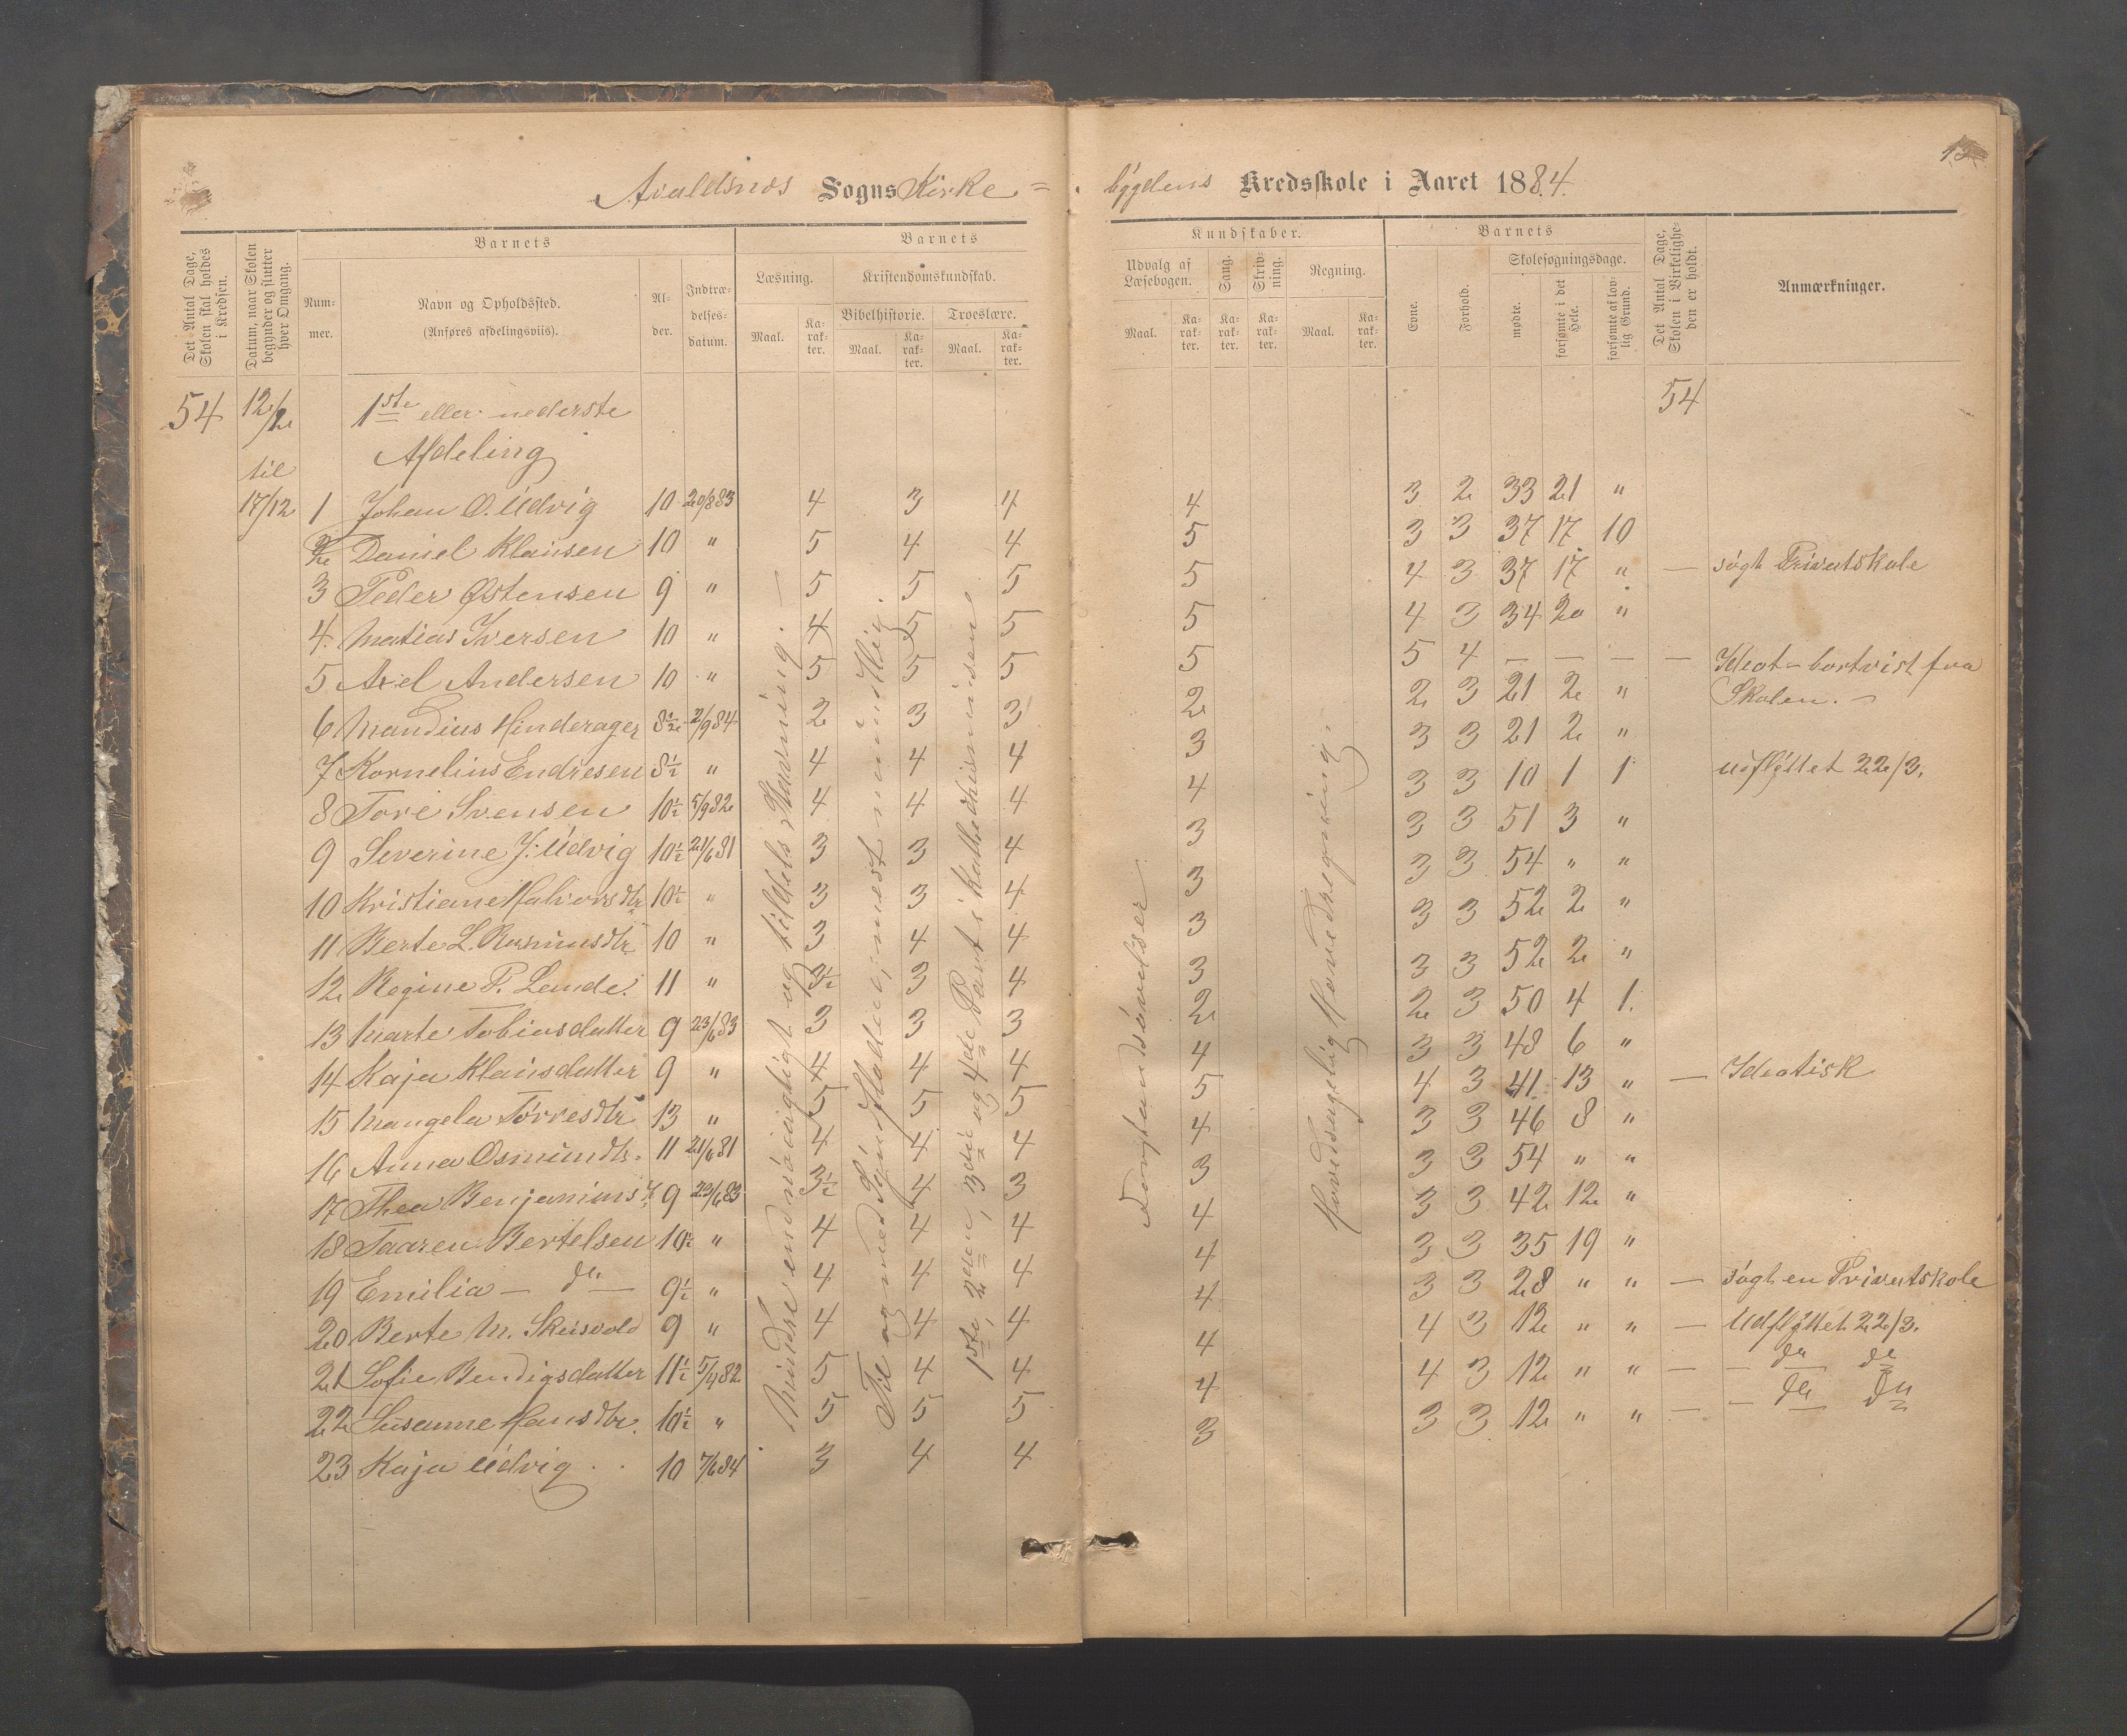 Avaldsnæs Sogns Kirke=
bygdens Kredsskole i Aaret 1884.
Det Antal Dage, Skolen skal holdes i Kredsen.
Datum, naar Skolen begynder og slutter hver Omgang.
Barnets
Num-mer.
Navn og Opholdssted.
(Anføres afdelingsviis).
Al-der.
Indtræ-delses-datum.
Barnets
Læsning.
Kristendomskundskab.
Bibelhistorie. Troeslære.
Maal. Ka-rak-ter. Maal. Ka-rak-ter. Maal. Ka-rak-ter.
Kundskaber.
Udvalg af Læsebogen. Sang. Skriv-ning. Regning.
Maal. Ka-rak-ter. Ka-rak-ter. Ka-rak-ter. Maal. Ka-rak-ter.
Barnets
Evne. Forhold. Skolesøgningsdage.
mødte. forsømte i det Hele. forsømte af lov-lig Grund.
Det Antal Dage, Skolen i Virkelighe-den er holdt.
Anmærkninger.
54 12/2 1ste eller nederste 54
Afdeling
til
17/12 1 Johan O. Udvig 10 20/8 83 4 3 4 4 3 2 33 21 "
2 Daniel Klausen 10 " 5 4 4 5 3 3 37 17 10
3 Peder Østensen 9 " 5 5 5 5 4 3 37 17 " — søgt Privatskole
4 Matias Iversen 10 " 4 5 5 5 4 3 34 20 "
5 Axel Andersen 10 " 5 5 5 5 5 4 — — — — Ideot – bortvist fra
Skolen. –
6 Mandius Hinderager 8½ 2/9 84 2 3 3 2 2 3 21 2 "
7 Kornelius Endresen 8½ " 4 4 4 3 3 3 21 2 "
8 Tore Svensen 10½ 5/9 82 4 4 4 4 3 3 10 1 1 udflyttet 22/3.
9 Severine J. Udvig 10½ 21/6 81 3 3 4 3 3 3 51 3 "
10 Kristiane Halvorsdtr 10½ " 3 3 4 3 3 3 54 " "
11 Berte L. Rasmusdtr 10 " 3 4 4 3 3 3 52 2 "
12 Regine P. Lande. 11 " 3½ 3 4 3 3 3 52 2 "
13 Marte Tobiasdatter 9 23/6 83 3 3 3 2 2 3 50 4 1.
14 Kaja Klausdatter 9 " 4 4 4 4 3 3 48 6 "
15 Mangela Torresdtr 13 " 5 5 5 5 4 3 41 13 " — Ideotisk
16 Anna Osmundtr. 11 21/6 81 4 4 4 4 3 3 46 8 "
17 Thea Benjamins 9 23/6 83 3½ 4 3 3 3 3 54 " "
18 Taaren Bertelsen 10½ " 4 4 4 4 3 3 42 12 "
19 Emilia — do — 9½ " 4 4 4 4 3 3 35 19 "
20 Berte M. Skeisvold 9 " 4 4 4 4 3 3 28 " " — søgt en Privatskole
21 Sofie Bendigsdatter 11½ 5/4 82 5 4 4 4 4 3 12 " " — Udflyttet 22/3.
22 Susanne Hansdtr. 10½ " 5 5 5 4 4 3 12 " " — — do do
23 Kaja Udvig 10 7/6 84 3 4 4 3 3 3 12 " " — — do do
Mindre endnøiagtigt og tildels Stavning. —
Til og med Syndfloden; mest mundtlig.
1ste, 2den, 3die og 4de Part i Kathechismusen
Forstandsøvelser
Hovedsagelig Hovedregning.